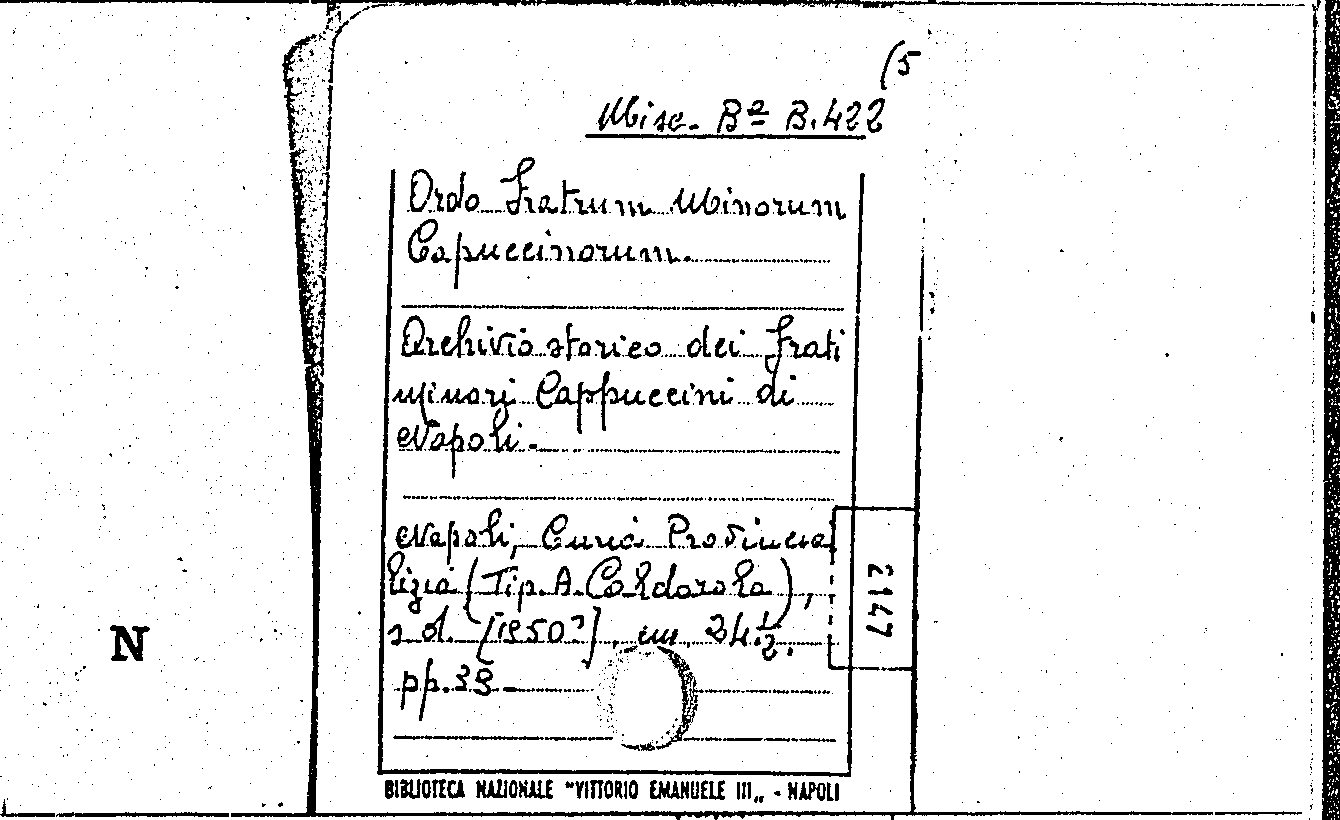 (5
Misc. Bª B.422
Ordo Fratrum Minorum
Capuccinorum.
Archivio storico dei frati
minori Cappuccini di
Napoli.
Napoli, Curia Provincia
lizia (Tip. A. Caldarola),
s. d. [1950?], cm 24½.
pp. 38.
2147
N
BIBLIOTECA NAZIONALE "VITTORIO EMANUELE III„ - NAPOLI